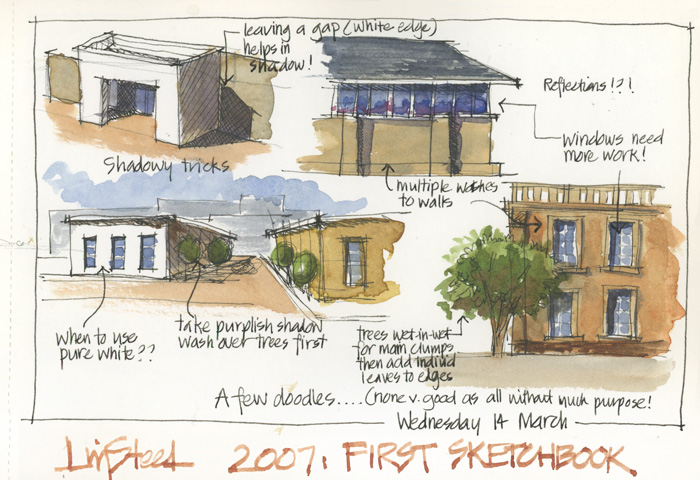 leaving a gap (white edge)
helps in
shadow!
Reflections!?!
windows need
more work!
Shadowy tricks
multiple washes
to walls
when to use
pure white??
take purplish shadow
wash over trees first
trees wet-in-wet
for main clumps
then add individ
leaves to edges
A few doodles.... (none v. good as all without much purpose!
Wednesday 14 March
Liz Steel 2007: FIRST SKETCHBOOK